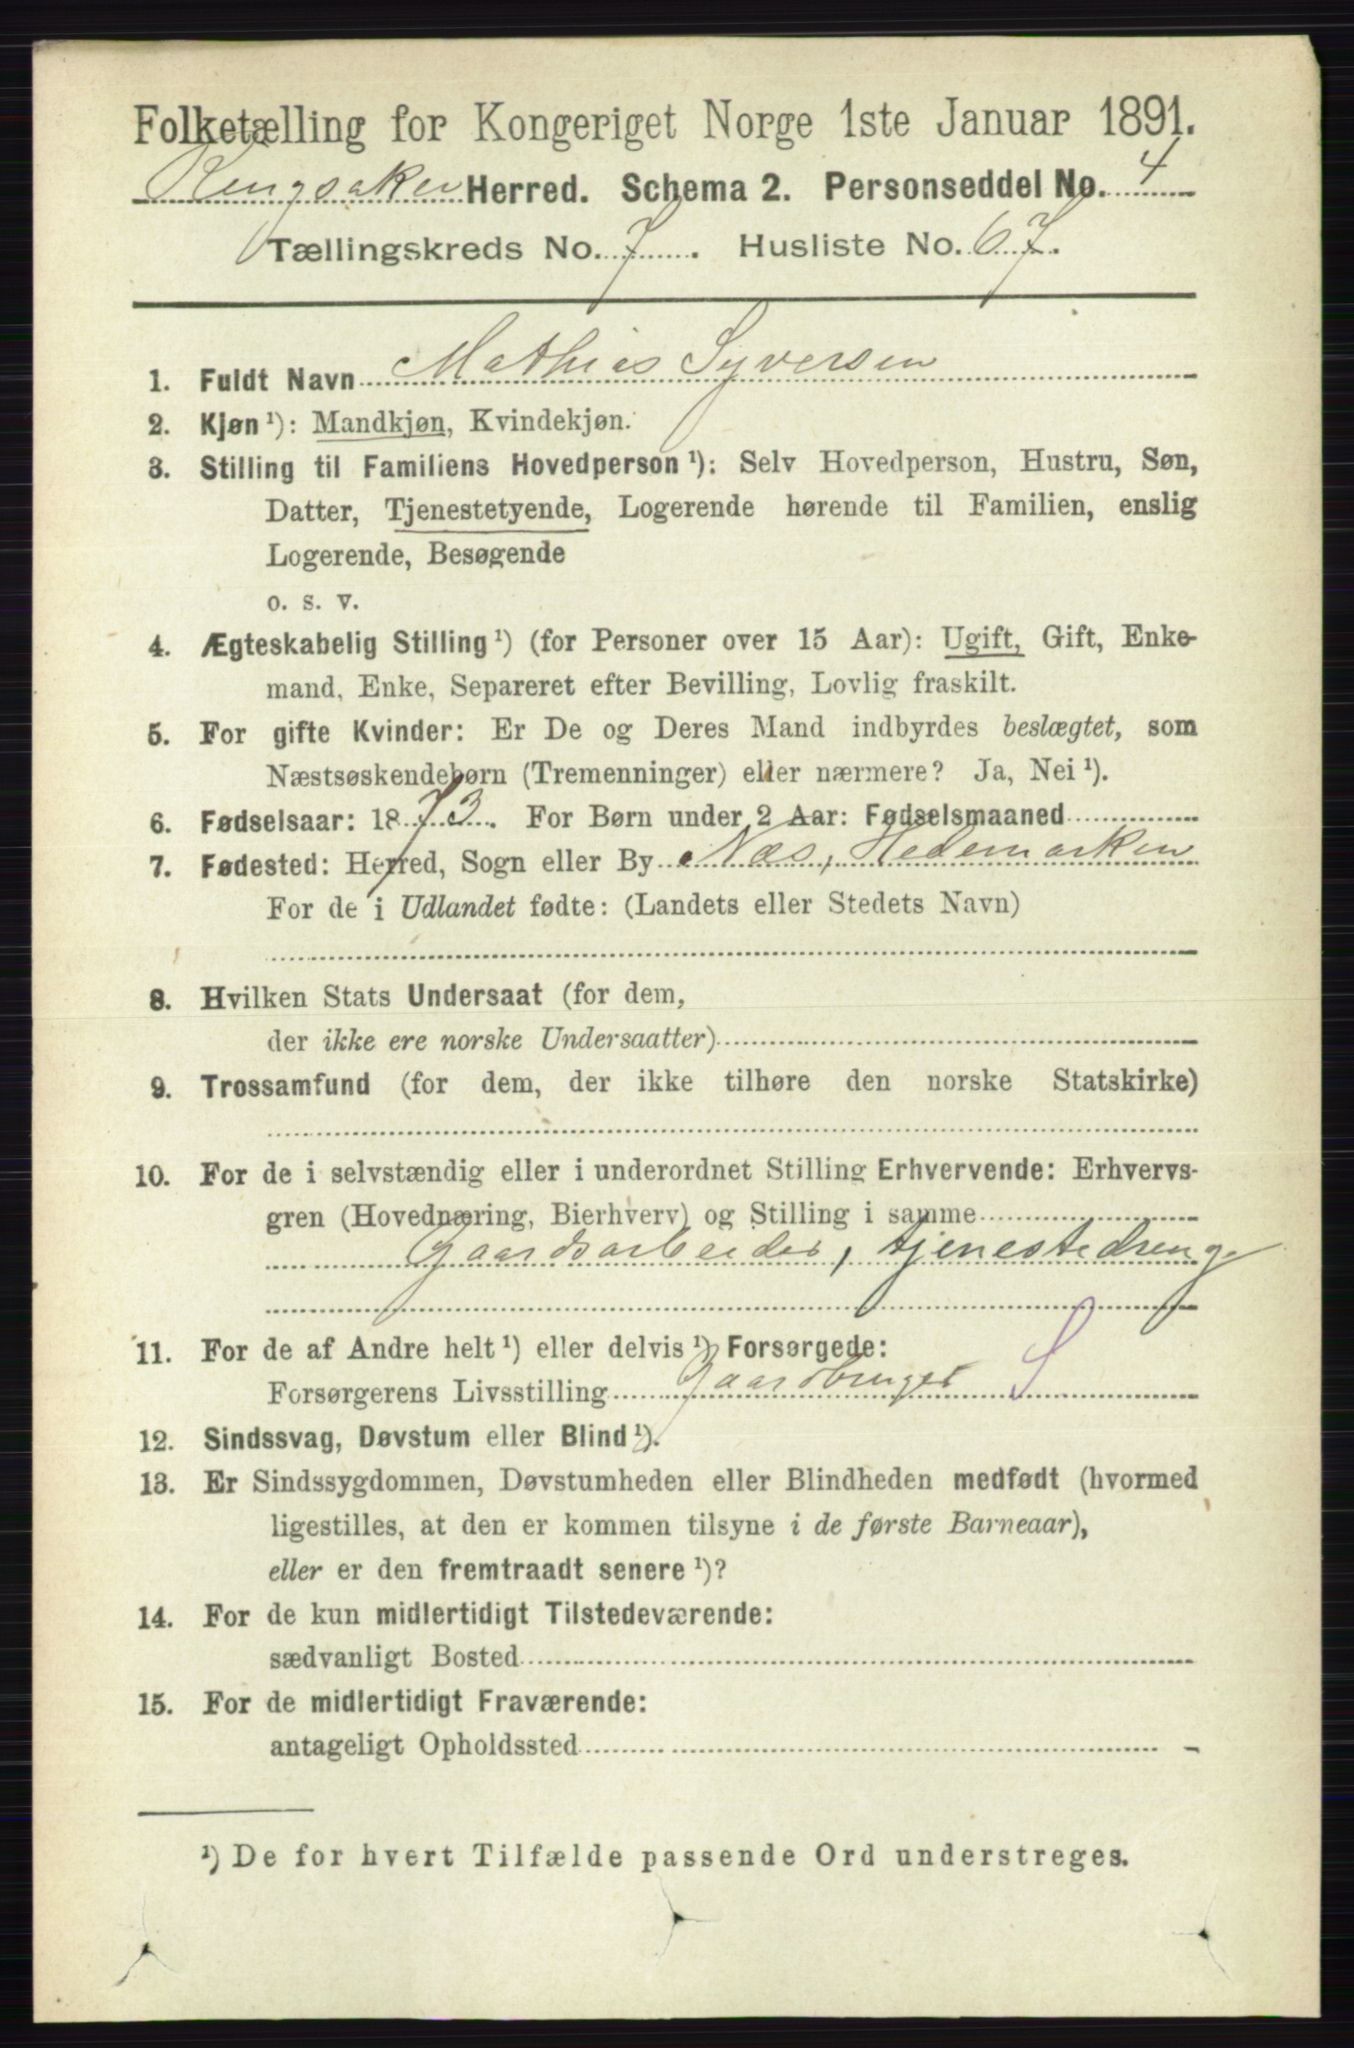 Folketælling for Kongeriget Norge 1ste Januar 1891.
Ringsaker Herred. Schema 2. Personseddel No. 4
Tællingskreds No. 7. Husliste No. 67.
1. Fuldt Navn Mathias Syversen
2. Kjøn ¹): Mandkjøn, Kvindekjøn.
3. Stilling til Familiens Hovedperson ¹): Selv Hovedperson, Hustru, Søn,
Datter, Tjenestetyende, Logerende hørende til Familien, enslig
Logerende, Besøgende
o. s. v.
4. Ægteskabelig Stilling ¹) (for Personer over 15 Aar): Ugift, Gift, Enke-
mand, Enke, Separeret efter Bevilling, Lovlig fraskilt.
5. For gifte Kvinder: Er De og Deres Mand indbyrdes beslægtet, som
Næstsøskendebørn (Tremenninger) eller nærmere? Ja, Nei ¹).
6. Fødselsaar: 1873. For Børn under 2 Aar: Fødselsmaaned
7. Fødested: Herred, Sogn eller By Næs, Hedemarken
For de i Udlandet fødte: (Landets eller Stedets Navn)
8. Hvilken Stats Undersaat (for dem,
der ikke ere norske Undersaatter)
9. Trossamfund (for dem, der ikke tilhøre den norske Statskirke)
10. For de i selvstændig eller i underordnet Stilling Erhvervende: Erhvervs-
gren (Hovednæring, Bierhverv) og Stilling i samme
Gaardsarbeider, tjenestedreng
11. For de af Andre helt ¹) eller delvis ¹) Forsørgede:
Forsørgerens Livsstilling Gaardbruger S
12. Sindssvag, Døvstum eller Blind ¹).
13. Er Sindssygdommen, Døvstumheden eller Blindheden medfødt (hvormed
ligestilles, at den er kommen tilsyne i de første Barneaar),
eller er den fremtraadt senere ¹)?
14. For de kun midlertidigt Tilstedeværende:
sædvanligt Bosted
15. For de midlertidigt Fraværende:
antageligt Opholdssted
¹) De for hvert Tilfælde passende Ord understreges.